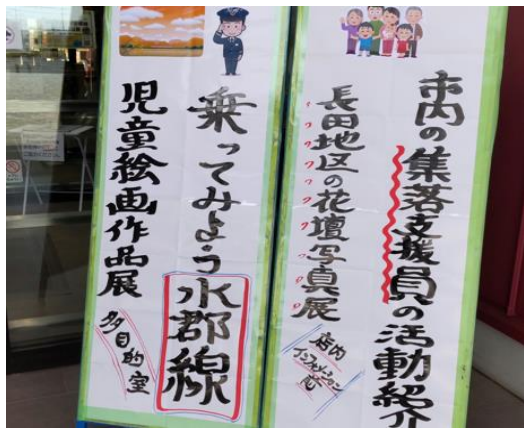 市内の集落支援員の活動紹介
長田地区の花壇写真展
店内
インフォメーション
乗ってみよう水郡線
児童絵画作品展
多目的室